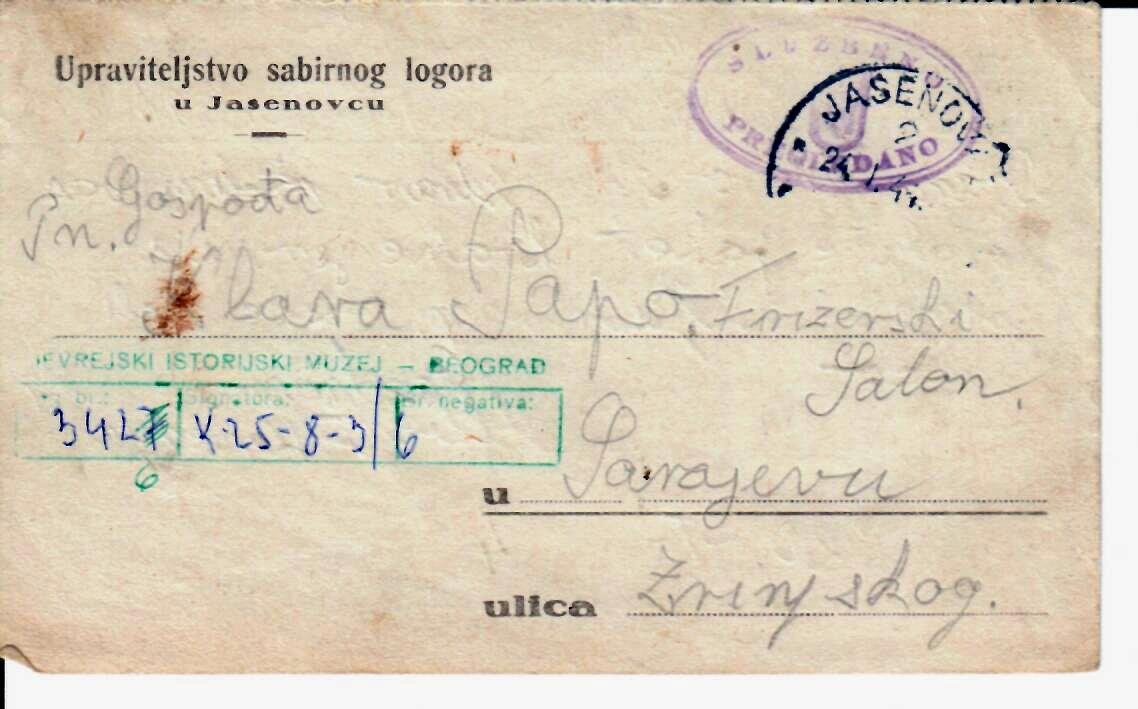 Upraviteljstvo sabirnog logora
u Jasenovcu
SLUŽBENO
PREGLEDANO
JASENOVAC
2
24
Gospođa
Pn.
Klara Papo, Frizerski
Salon.
JEVREJSKI ISTORIJSKI MUZEJ – BEOGRAD
br.: Signatura: Br. negativa:
342 K25-8-3/6
6
u Sarajevu
ulica Zrinjskog.